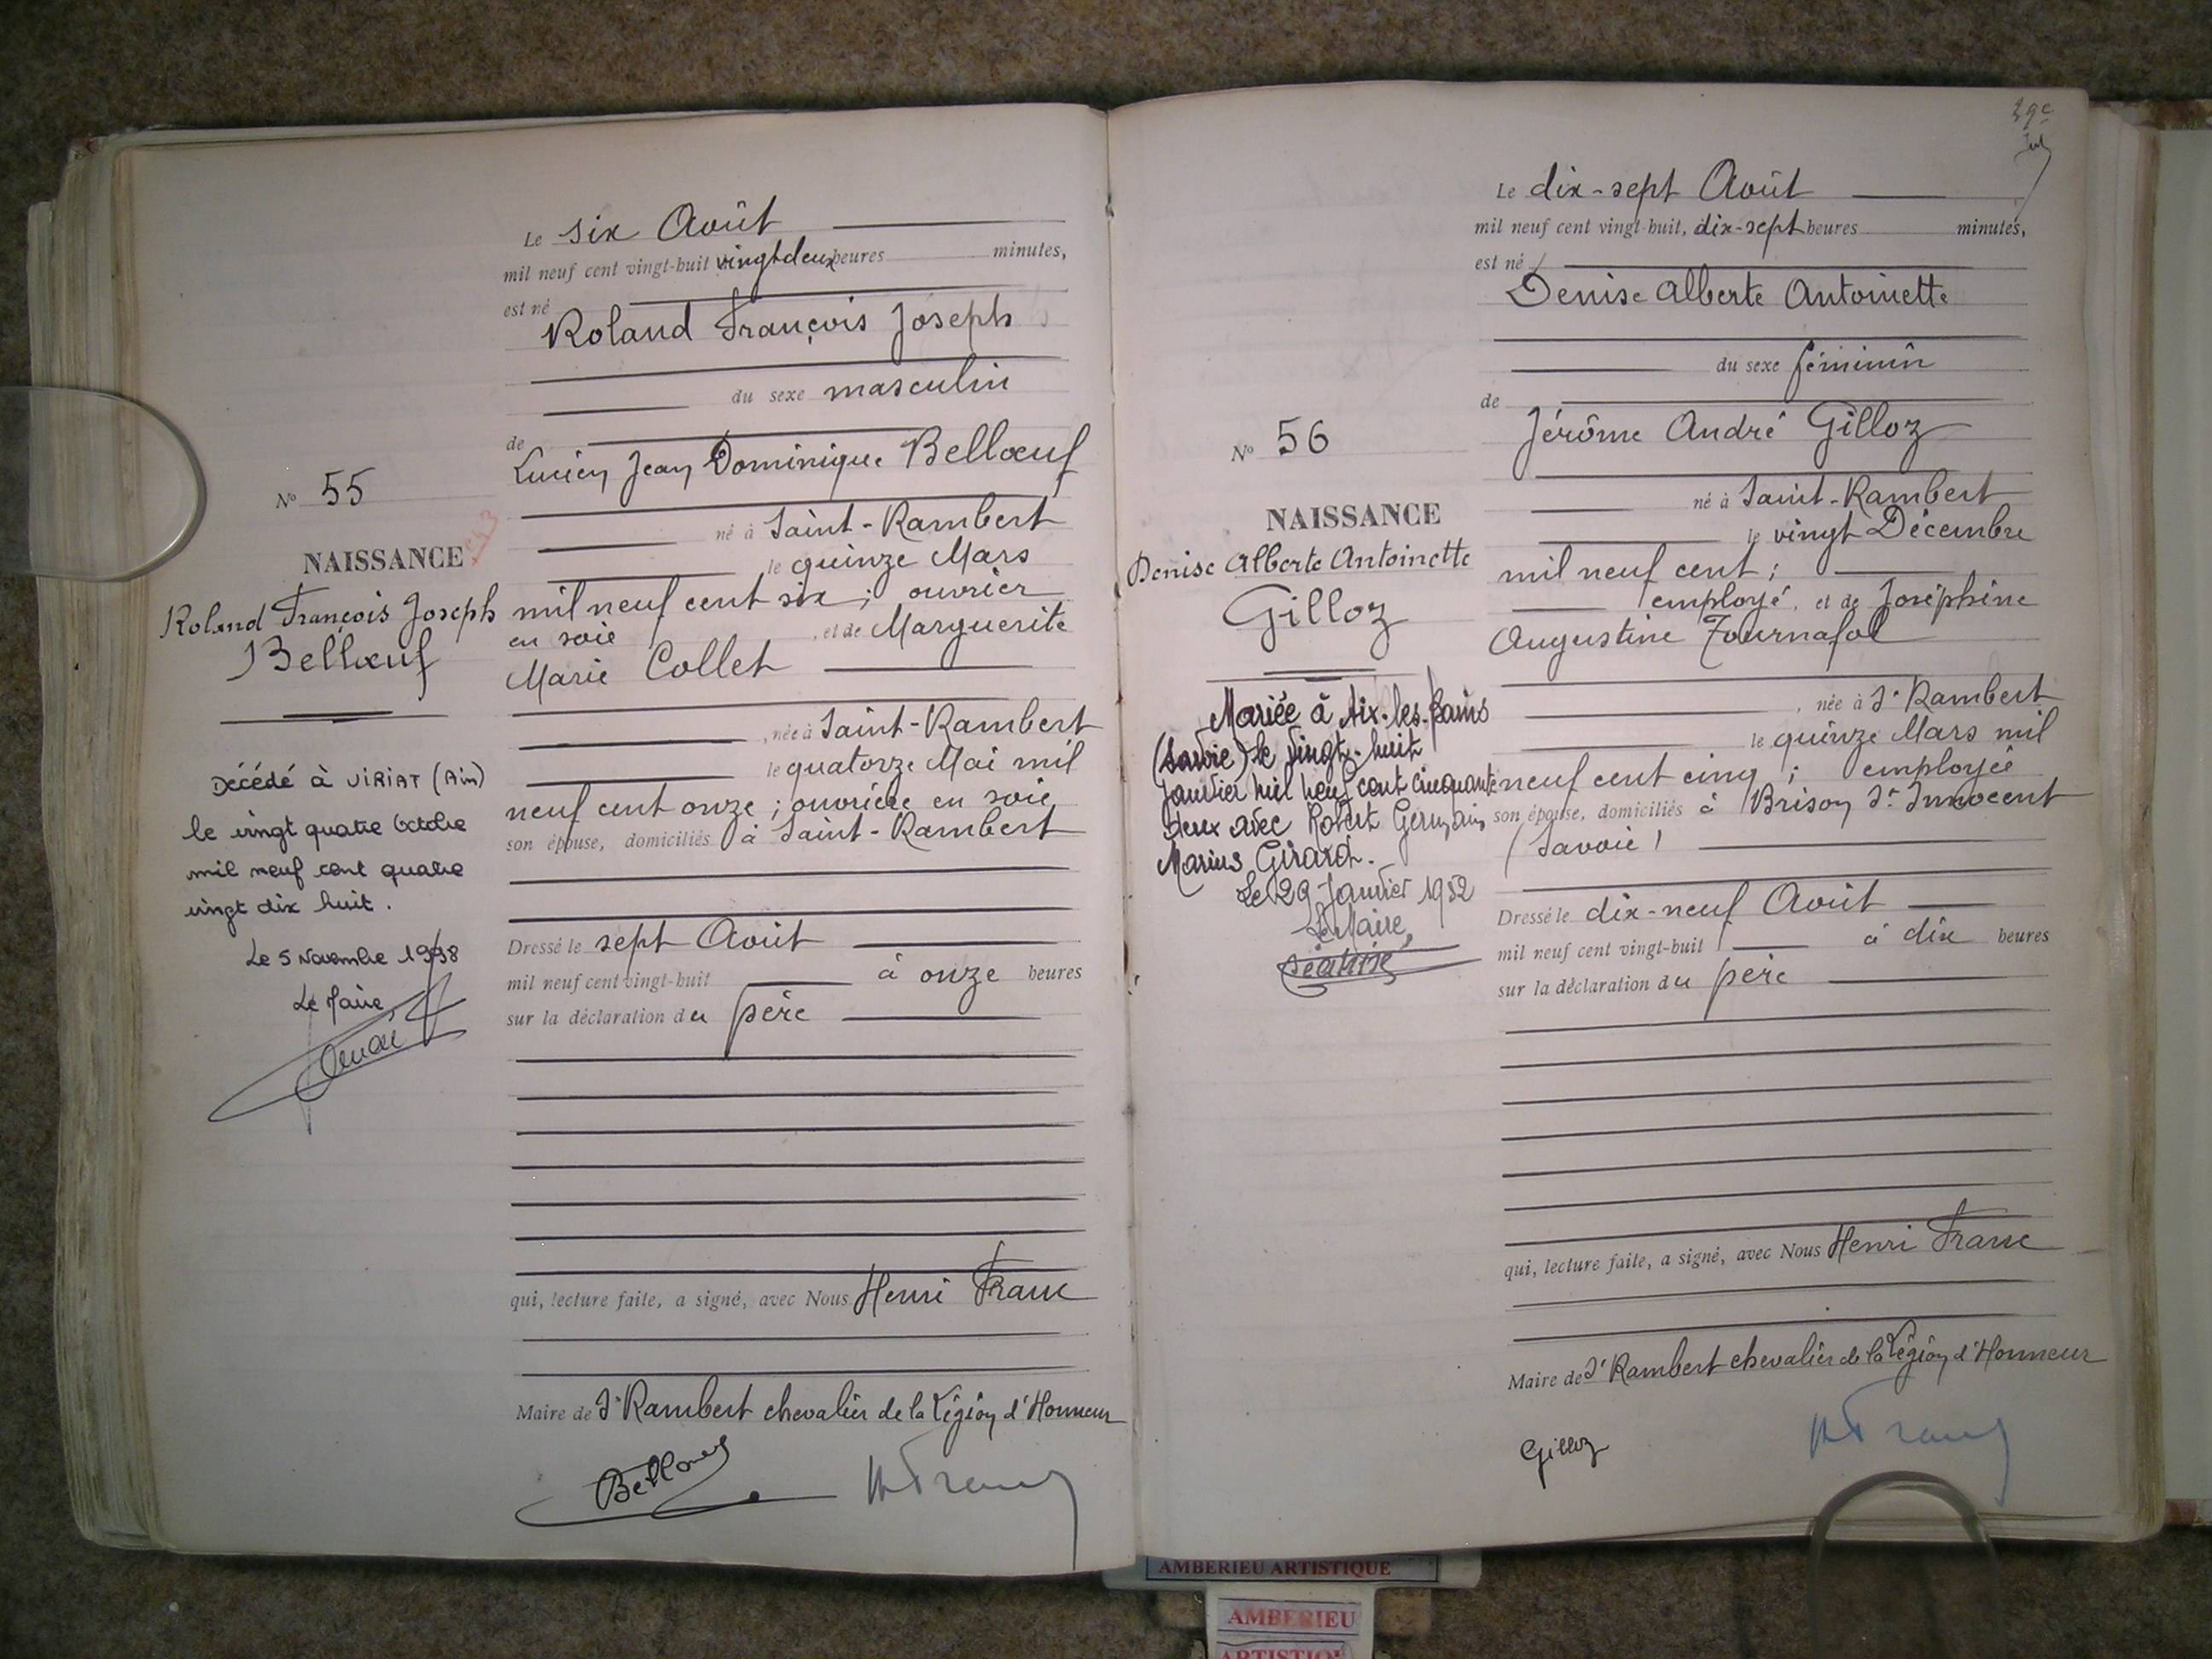 Le six Août
mil neuf cent vingt-huit vingt deux heures minutes,
est né
Roland François Joseph
du sexe masculin
de
Lucien Jean Dominique Bellœuf
né à Saint-Rambert
le quinze Mars
mil neuf cent six ; ouvrier
en soie , et de Marguerite
Marie Collet
, née à Saint-Rambert
le quatorze Mai mil
neuf cent onze ; ouvrière en soie
son épouse, domiciliés à Saint-Rambert
Dressé le sept Août
mil neuf cent vingt-huit à onze heures
sur la déclaration du père
qui, lecture faite, a signé, avec Nous Henri Franc
Maire de St Rambert chevalier de la Légion d'Honneur
No 55
NAISSANCE
Roland François Joseph
Bellœuf
Décédé à VIRIAT (Ain)
le vingt quatre Octobre
mil neuf cent quatre
vingt dix huit.
Le 5 Novembre 1998
Le Maire
Le dix-sept Août
mil neuf cent vingt-huit, dix-sept heures minutes,
est né
Denise Alberte Antoinette
du sexe féminin
de
Jérôme André Gilloz
né à Saint-Rambert
le vingt Décembre
mil neuf cent ;
employé, et de Joséphine
Augustine Tournafol
, née à St Rambert
le quinze Mars mil
neuf cent cinq ; employée
son épouse, domiciliés à Brison St Innocent
(Savoie)
Dressé le dix-neuf Août
mil neuf cent vingt-huit à dix heures
sur la déclaration du père
qui, lecture faite, a signé, avec Nous Henri Franc
Maire de St Rambert chevalier de la Légion d'Honneur
Gilloz
No 56
NAISSANCE
Denise Alberte Antoinette
Gilloz
Mariée à Aix-les-Bains
(Savoie) le vingt-huit
Janvier mil neuf cent cinquante
deux avec Robert Germain
Marius Girard.
Le 29 Janvier 1952
Le Maire,
AMBERIEU ARTISTIQUE
AMBERIEU
ARTISTIQUE